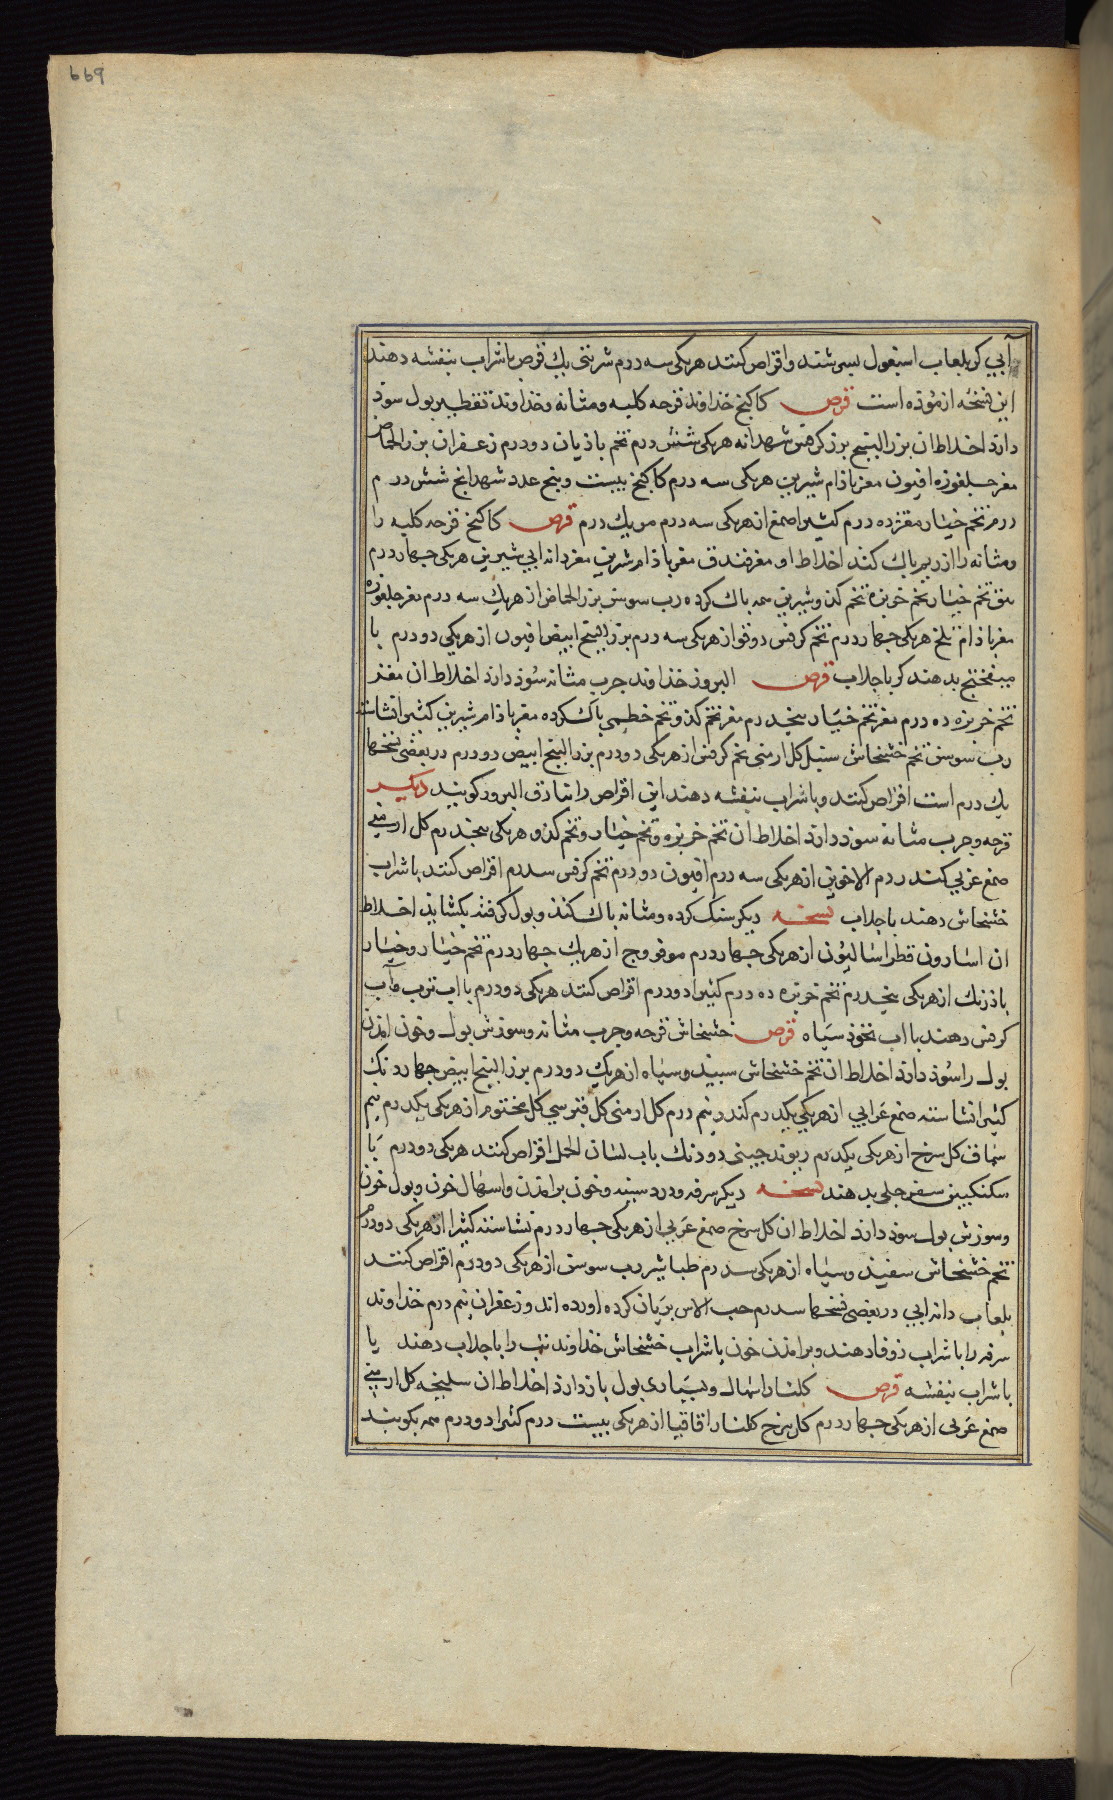 669
آبی کر بلعاب اسبغول بسرشند و اقراص کنند هریکی سه درم شربتی یک قرص باشراب بنفشه دهند
این نسخه ازموذه است قرص کاکنج خذاوند قرحه کلیه و مثانه و خذاوند تقطیر بول سوذ
دارذ اخلاط ان بزر البنج بزر کرفس شهدانه هریکی شش درم تخم باذیان دو درم زعفران بزر الحماض
مغز جلغوزه افیون مغز باذام شیرین هریکی سه درم کاکنج بیست و پنج عدد شهدانج شش درم
درم تخم خیار مقشر ده درم کثیرا صمغ از هریکی سه درم مر یک درم قرص کاکنج قرحه کلیه را
و مثانه را از ریم پاک کند اخلاط او مغز فندق مغز باذام شیرین مغز دانه ابی شیرین هریکی جهار درم
تخم خیار تخم خربزه تخم کدو شیرین همه پاک کرده رب سوس بزر الحماض از هریک سه درم مغز جلغوزه
مغز باذام تلخ هریکی جهار درم تخم کرفس دوقو از هریکی سه درم بزر البنج ابیض افیون از هریکی دو درم با
میفختج بدهند کر باجلاب قرص البروز خذاوند جرب مثانه سوذ دارذ اخلاط ان مغز
تخم خربزه ده درم مغز تخم خیار پنجدرم مغز تخم کدو تخم خطمی پاک کرده مغز باذام شیرین کثیرا نشاسته
رب سوس تخم خشخاش سنبل کل ارمنی تخم کرفس از هریکی دو درم بزر البنج ابیض دو درم در بعضی نسخها
یک درم است اقراص کنند و باشراب بنفشه دهند این اقراص را بنادق البروز کویند دیکر
قرحه و جرب مثانه سوذ دارذ اخلاط ان تخم خربزه و تخم خیار و تخم کدو هریکی پنجدرم کل ارمنی
صمغ عربی کندر دم الاخوین از هریکی سه درم افیون دو درم تخم کرفس سدرم اقراص کنند باشراب
خشخاش دهند باجلاب نسخه دیکر سنک کرده و مثانه پاک کند و بول کرفته بکشایذ اخلاط
ان اسارون فطراسالیون از هریکی جهار درم مو فو وج از هریک جهار درم تخم خیار و خیار
باذرنک از هریکی پنجدرم تخم خربزه ده درم کثیرا دو درم اقراص کنند هریکی دو درم با اب ترب و آب
کرفس دهند با اب نخوذ سیاه قرص خشخاش قرحه و جرب مثانه و سوزش بول و خون امذن
بول را سوذ دارذ اخلاط ان تخم خشخاش سبیذ و سیاه از هریک دو درم بزر البنج ابیض جهار دنک
کثیرا نشاسته صمغ عرابی از هریکی یکدرم کندر نیم درم کل ارمنی کل قبرسی کل مختوم از هریکی یکدرم نیم
سماق کل سرخ از هریکی یکدرم ریوند جینی دو دنک باب لسان الحمل اقراص کنند هریکی دو درم با
سکنکبین سفرجلی بدهند نسخه دیکر سرفه و درد سینه و خون برامذن و اسهال خون و بول خون
و سوزش بول سوذ دارذ اخلاط ان کل سرخ صمغ عربی از هریکی جهار درم نشاسته کثیرا از هریکی دو درم
تخم خشخاش سفیذ و سیاه از هریکی سدرم طباشیر رب سوس از هریکی دو درم اقراص کنند
بلعاب دانه ابی در بعضی نسخها سدرم حب الاس بریان کرده اورده اند و زعفران نیم درم خذاوند
سرفه را باشراب زوفا دهند و برامذن خون باشراب خشخاش خذاوند تب را باجلاب دهند یا
باشراب بنفشه قرص کلنار اسهال و بسیاری بول بازدارذ اخلاط ان سلیخه کل ارمنی
صمغ عربی از هریکی جهار درم کل سرخ کلنار اقاقیا از هریکی بیست درم کثیرا دو درم همه بکوبند